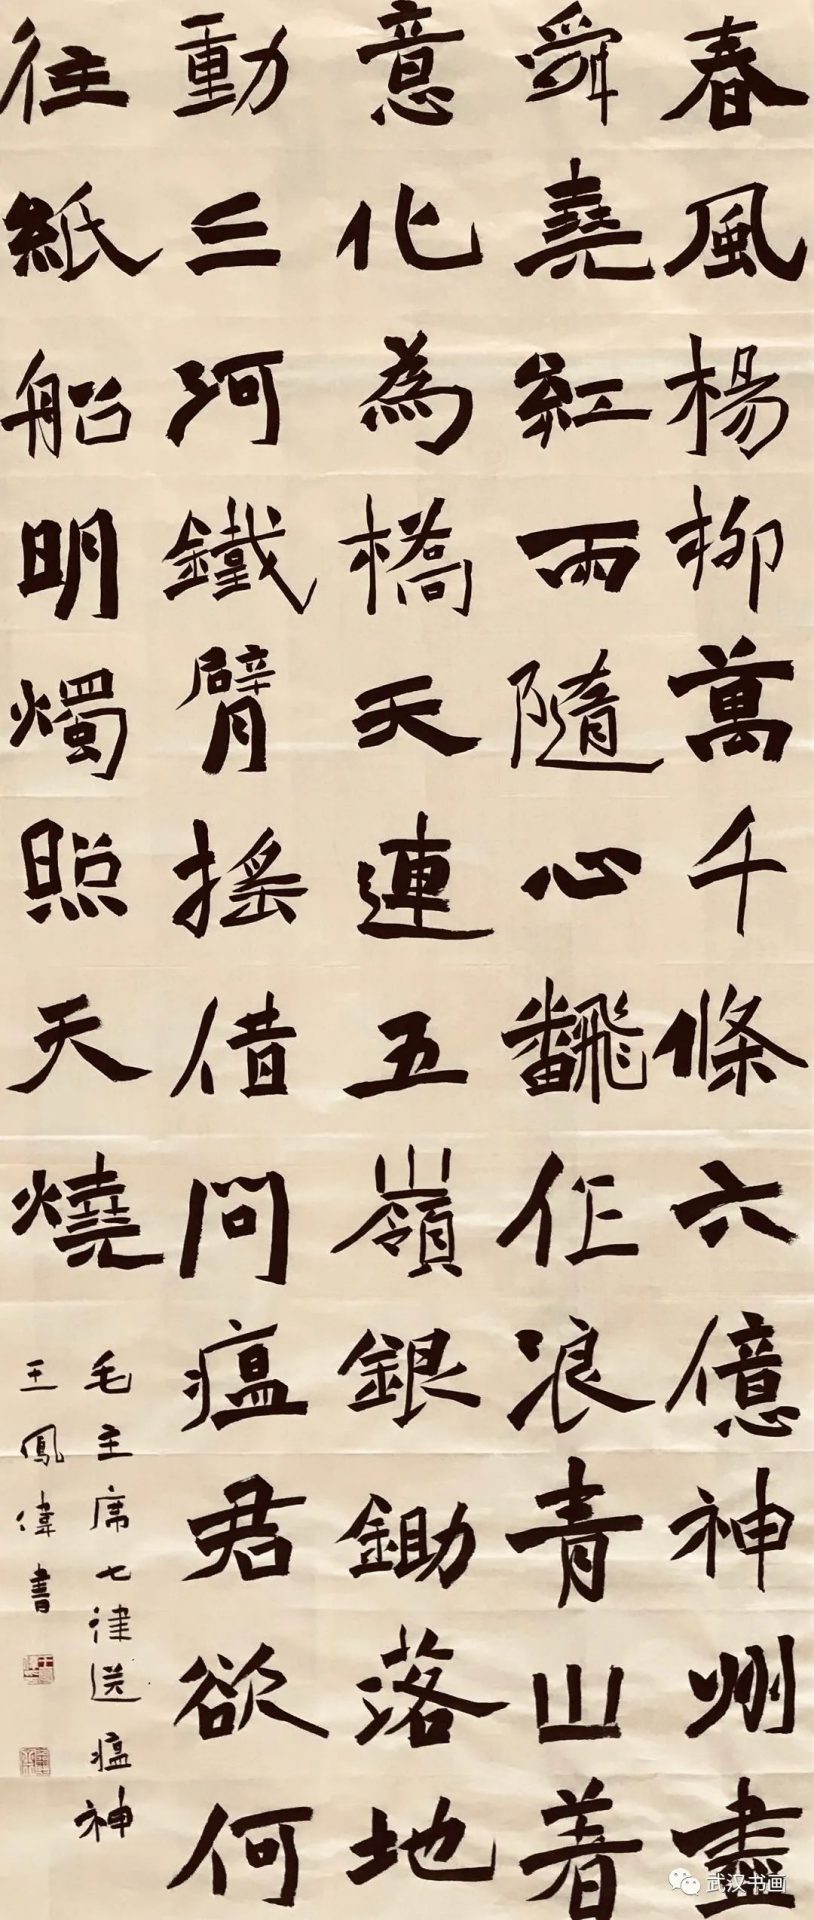 春風楊柳萬千條六億神州盡
舜堯紅雨隨心飜作浪青山着
意化為橋天連五嶺銀鋤落地
動三河鐵臂搖借問瘟君欲何
往紙船明燭照天燒
毛主席七律送瘟神
王鳳偉書
武汉书画